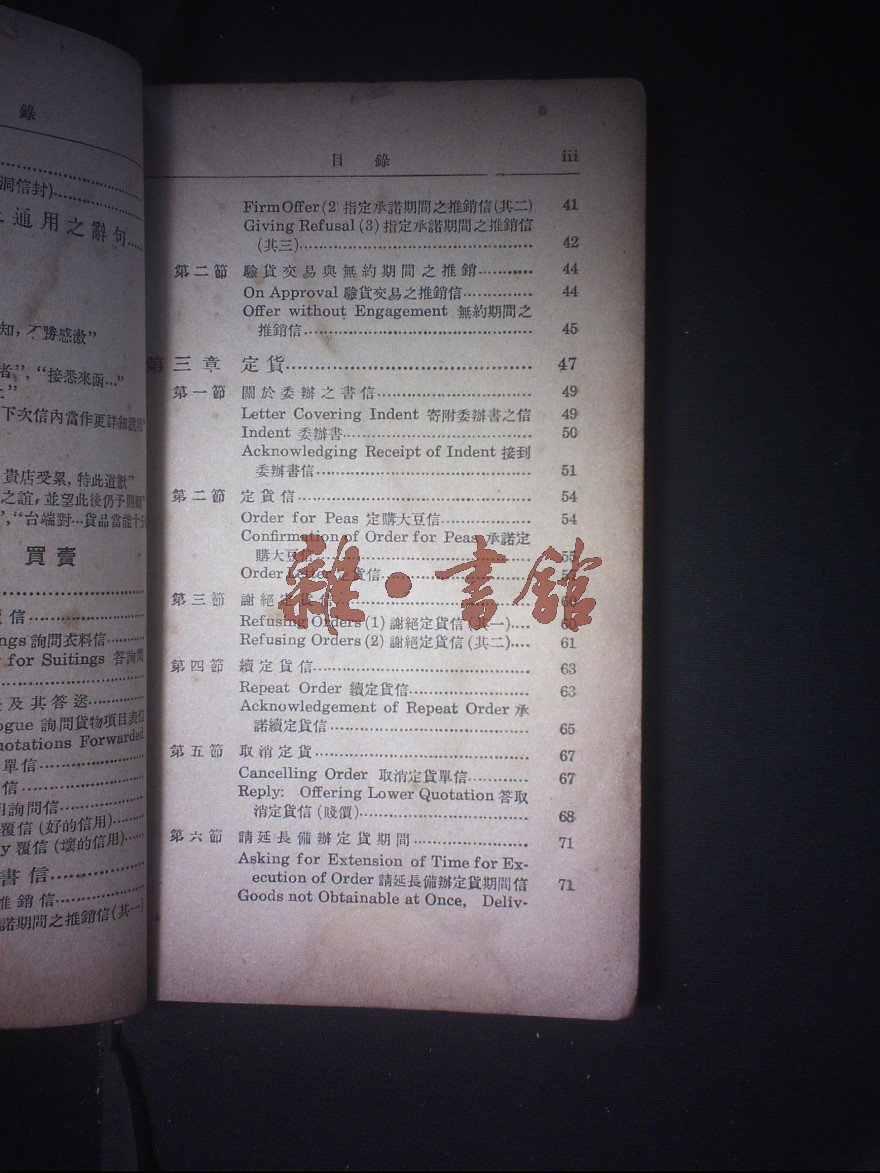 錄
洞信封)
通用之辭句
知，不勝感激”
者”，“接悉來函…”
下次信內當作更詳細說明”
貴店受累，特此道歉”
之誼，並望此後仍予照顧”
“台端對…貨品當能十分
買賣
信
ings 詢問衣料信
for Suitings 答詢問
及其答送
ogue 詢問貨物項目表信
uotations Forwarded
單信
信
用詢問信
覆信 (好的信用)
y 覆信 (壞的信用)
書信
推銷信
諾期間之推銷信(其一)
目錄 iii
Firm Offer (2) 指定承諾期間之推銷信(其二) 41
Giving Refusal (3) 指定承諾期間之推銷信
(其三) 42
第二節 驗貨交易與無約期間之推銷 44
On Approval 驗貨交易之推銷信 44
Offer without Engagement 無約期間之
推銷信 45
第三章 定貨 47
第一節 關於委辦之書信 49
Letter Covering Indent 寄附委辦書之信 49
Indent 委辦書 50
Acknowledging Receipt of Indent 接到
委辦書信 51
第二節 定貨信 54
Order for Peas 定購大豆信 54
Confirmation of Order for Peas 承諾定
購大豆信 55
Order Letter 定貨信
第三節 謝絕定貨信 60
Refusing Orders (1) 謝絕定貨信 (其一) 60
Refusing Orders (2) 謝絕定貨信 (其二) 61
第四節 續定貨信 63
Repeat Order 續定貨信 63
Acknowledgement of Repeat Order 承
諾續定貨信 65
第五節 取消定貨 67
Cancelling Order 取消定貨單信 67
Reply: Offering Lower Quotation 答取
消定貨信 (賤價) 68
第六節 請延長備辦定貨期間 71
Asking for Extension of Time for Ex-
ecution of Order 請延長備辦定貨期間信 71
Goods not Obtainable at Once, Deliv-
雜·書館